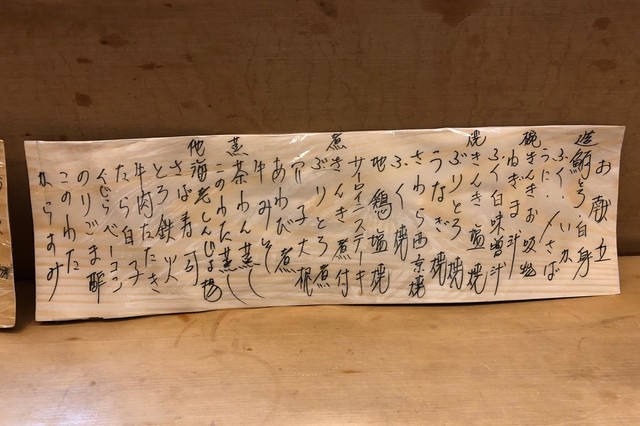 お献立
造 鮪とろ・白身
ふぐ・いか
うに・〆さば
椀 きんきお吸物
ねぎま斗
ふぐ白味噌斗
焼 きんき塩焼
ぶりとろ焼
うなぎ焼
さわら西京焼
ふぐ焼
地鶏塩焼
サーロインステーキ
煮 きんき煮付
ぶりとろ煮
穴子大根
あわび煮
牛みそ煮
蒸 茶わん蒸し
このわた蒸し
他 海老しんじょ揚
さば寿司
とろ鉄火
牛肉たたき
たら白子
くじらベーコン
のりごま酢
このわた
からすみ